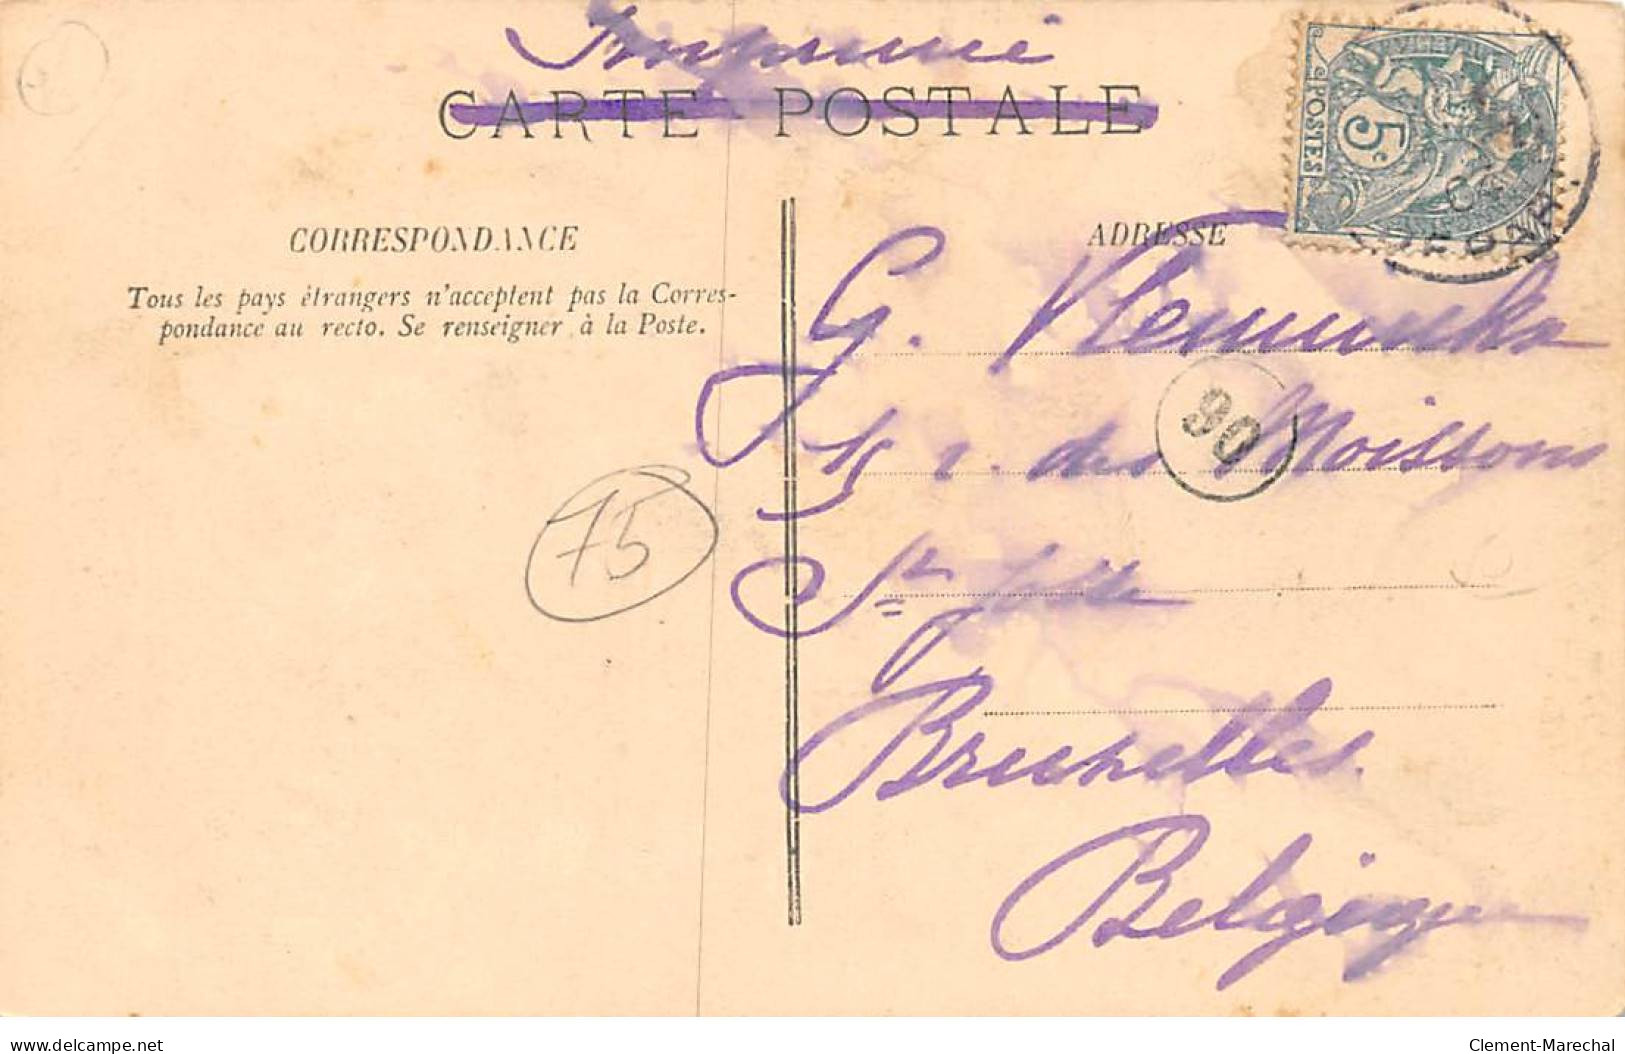 Imprimé
CARTE POSTALE
5c
POSTES
CORRESPONDANCE
Tous les pays étrangers n'acceptent pas la Corres-
pondance au recto. Se renseigner à la Poste.
ADRESSE
G.
r. des Moissons
90
75
St Josse
Bruxelles
Belgique
delcampe.net
Clement-Marechal